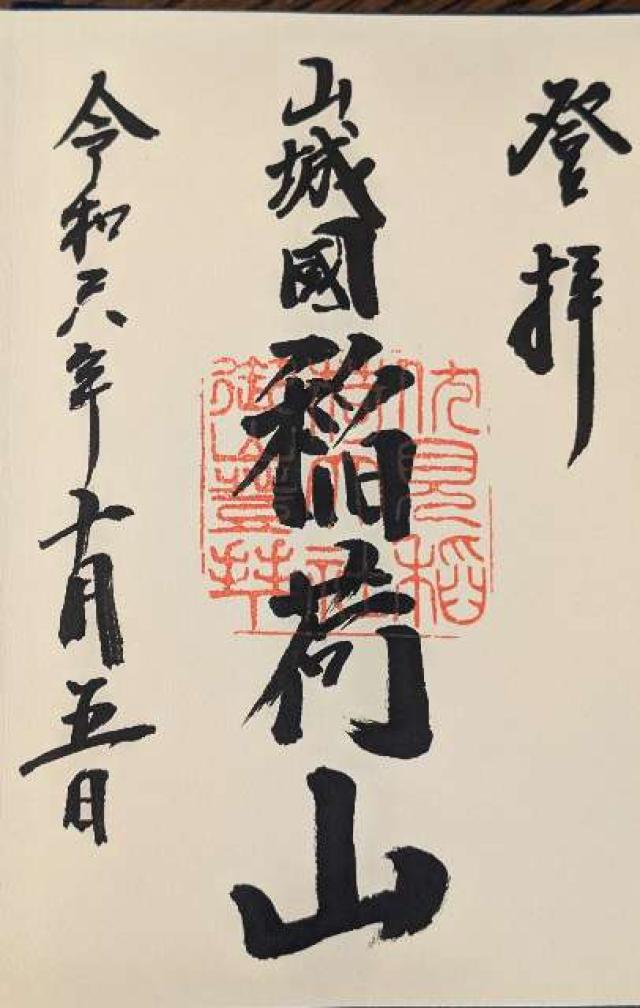 登拝
山城國稲荷山
令和六年十月五日
伏見稲
荷大社
御山登拝